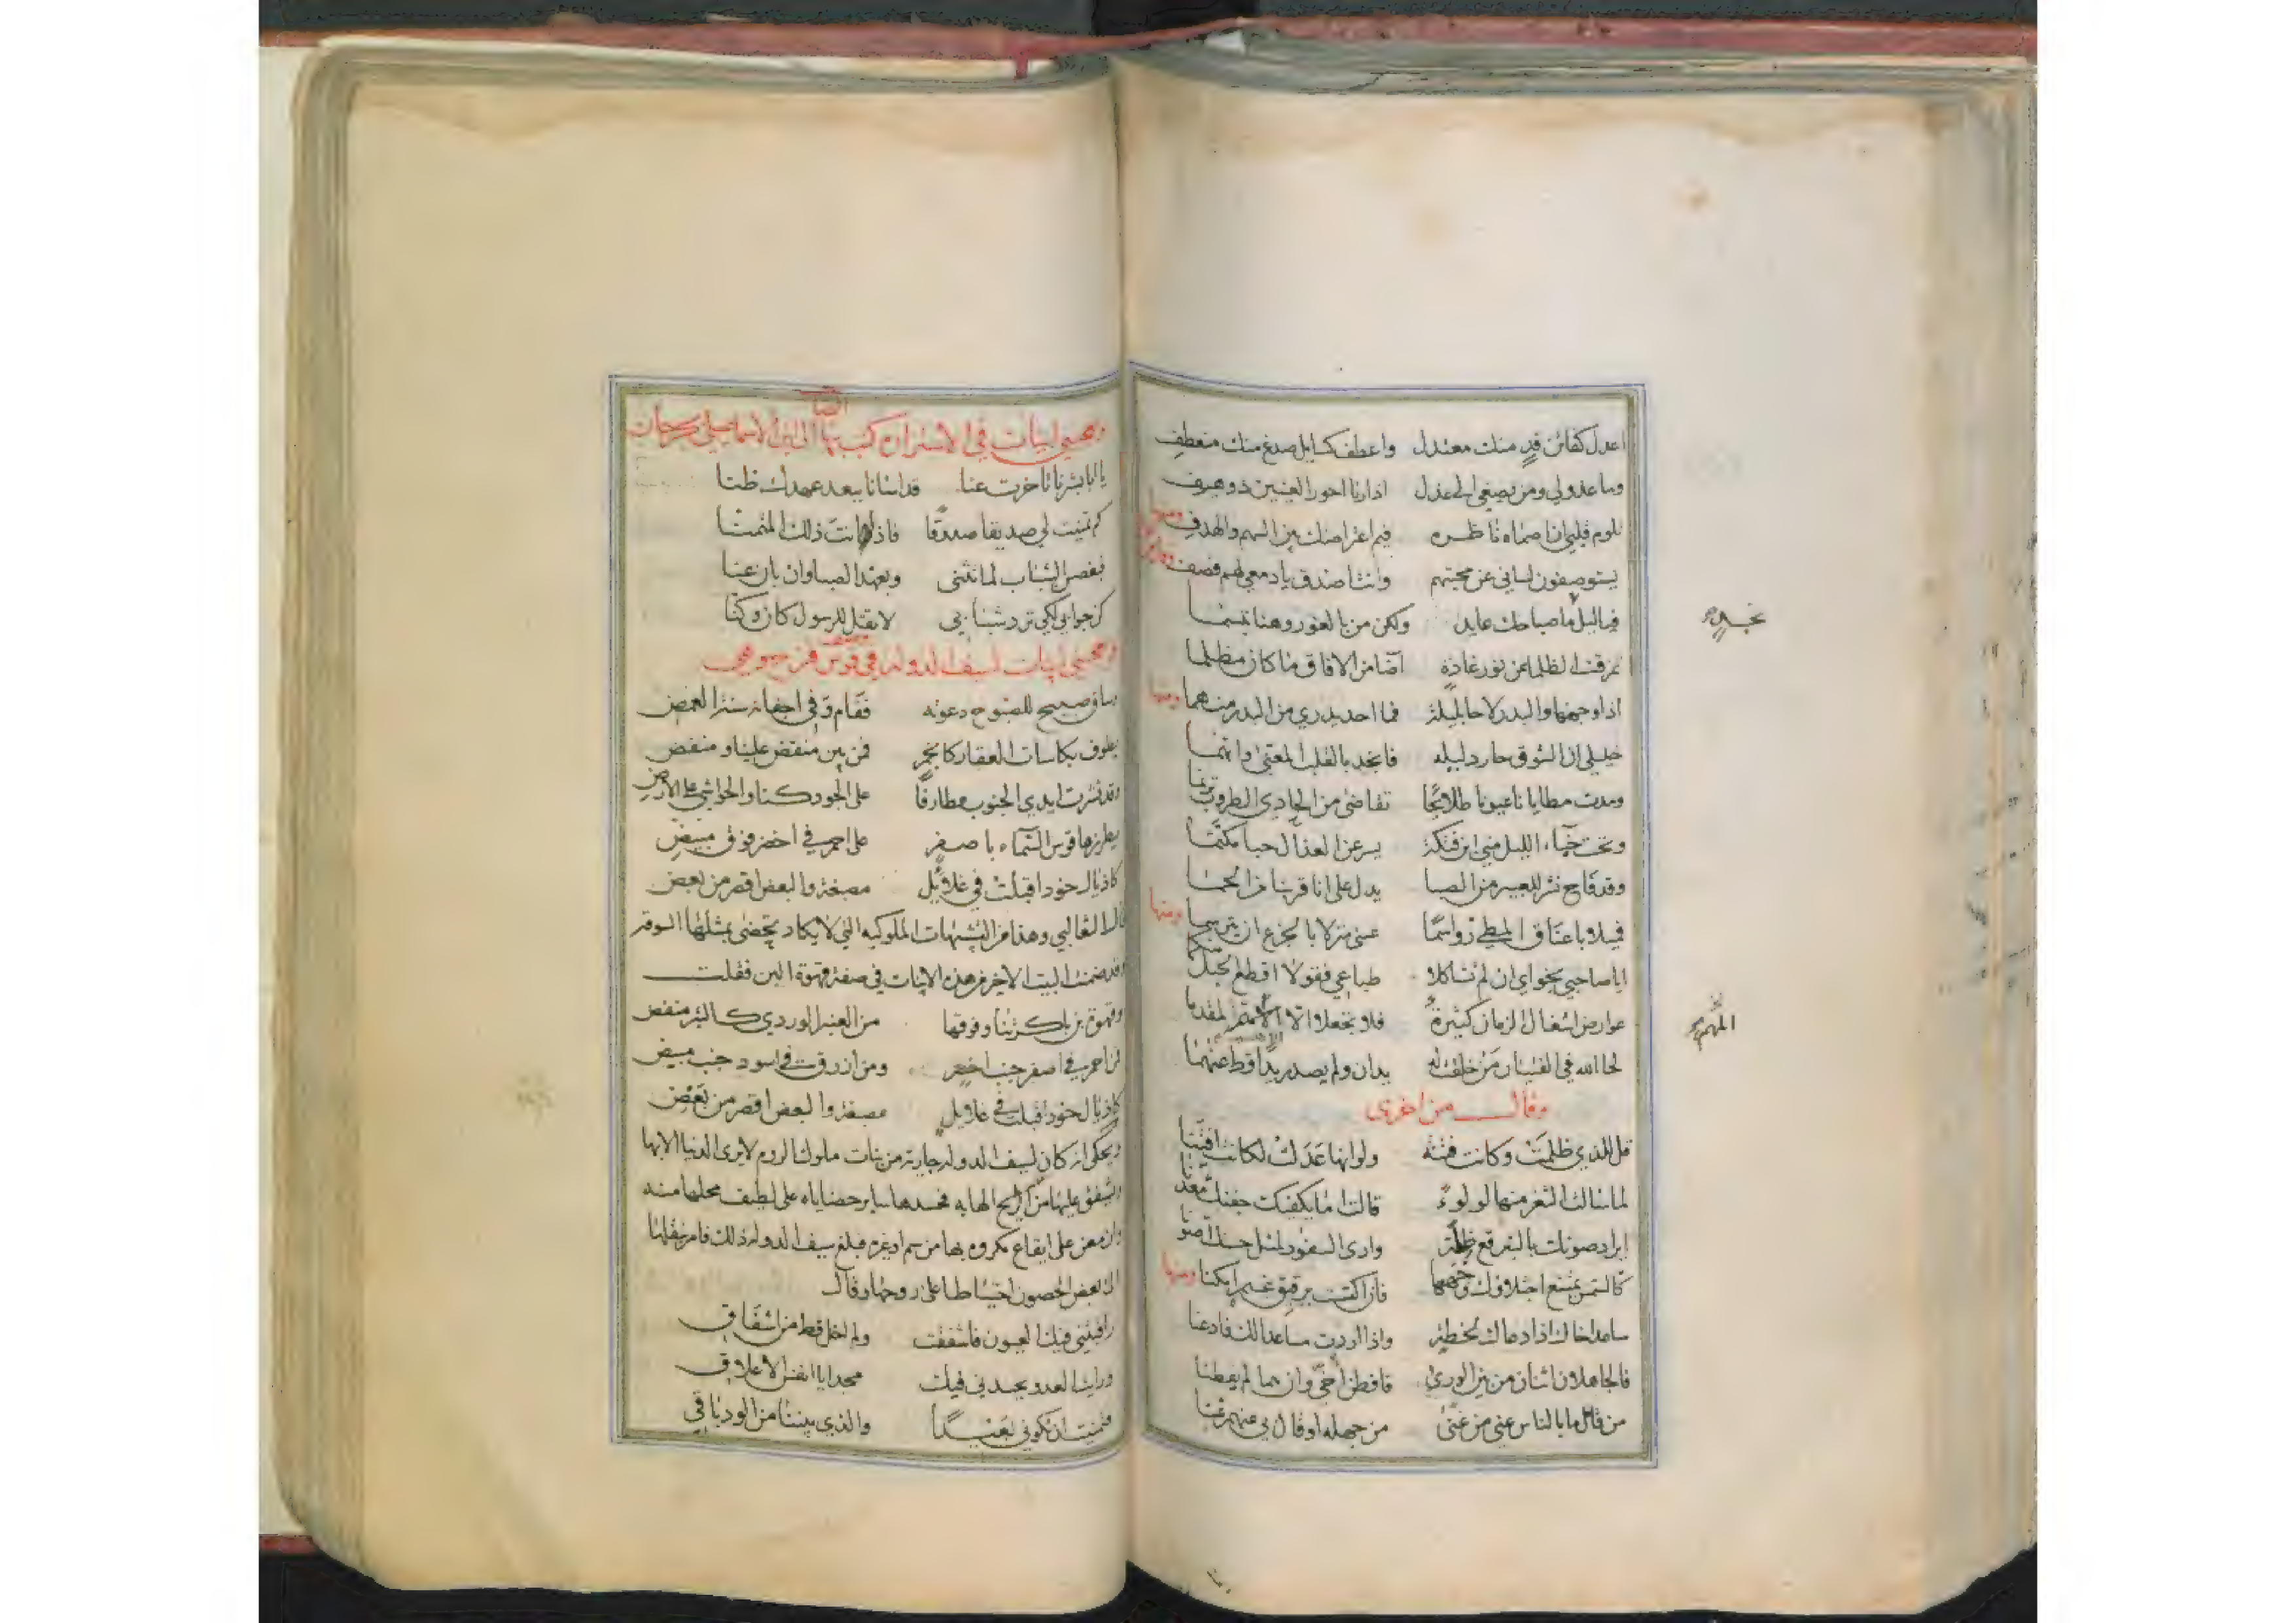 اعدل كفاتن قد منك معتدل واعطف كسايل صدغ منك منعطف
وما عذولي ومن يصغي الى عذل اذا رنا احور العينين ذو هيف
تلوم قلبي ان اصماه ناظره فيم اعتراضك بين السهم والهدف ومنها
يستوصفون لساني عن محبتهم وانت اصدق يا دمعي لهم فصف
فيا ليل ما صباحك عايد ولكن من بالغور وهنا تبسما
تمزقت الظلما عن نور غادة اضا من الافاق ما كان مظلما
اذا وجهها والبدر لاحا بليلة فما احد يدري من البدر منهما ومنها
خليلي ان الشوق حار دليله فا بالقلب المعنى وانتما
ومدت مطايانا عيونا طلائحا تقاضى من الحادي الطروب ترنما
وتحت خباء الليل مني ابن فتكة يسر عن العذال حبا مكتما
وقد فاح نشر للعبير من الصبا يدل على انا قربنا من الحما
فميلا باعناق المطي رواسما عسى منزلا بالجزع ان يترسما ومنها
ايا صاحبي نجواي ان لم تشاكلا طباعي فقولا اقطع الحبل منكما
عوارض اشغال الزمان كثيرة فلا تجعلا الا المهم المقدما
لحا الله في الفتيان من خلقت له يدان ولم يصدر يدا قط عنهما
وقال من اخرى
قل للذي ظلمت وكانت فتنة ولو انها عدلت لكانت افتنا
لما سالت الثغر منها لولوء قالت اما يكفيك جفنك معدنا
ايراد صونك بالتبرقع ظلة وارى السفور لمثل حسنك اصونا
كالشمس يمتنع اجتلاؤك وجهها فاذا اكتست برقيق غيم امكنا ومنها
ساعد اخاك اذا دعاك لخطة واذا اردت مساعدا لك فادعنا
فالجاهلان اثنان من بين الورى فافطن اخي وان هما لم يفطنا
من قال ما بالناس عني من غنى من جهله او قال بي عنهم غنا
المهم
ايضا
يا ابا بشرنا تاخرت عنا قد اسانا ببعد عهدك ظنا
كم تمنيت لي صديقا صدوقا فاذا انت ذلك المتمنا
فبغصن الشباب لما تثنى وبعهد الصبا وان بان عنا
كن جوابي لكي ترد شبابي لا تقل للرسول كان وكنا
ابيات لسيف الدولة في قوس قزح وهي
وساق صبيح للصبوح دعوته فقام وفي اجفانه سنة الغمض
يطوف بكاسات العقار كانجم فمن بين منقض علينا ومنفض
وقد نشرت ايدي الجنوب مطارفا على الجو دكنا والحواشي على الارض
يطرزها قوس السماء باصفر على احمر في اخضر فوق مبيض
كاذيال خود اقبلت في غلائل مصبغة والبعض اقصر من بعض
قال الثعالبي وهذا من التشبيهات الملوكيه التي لا يكاد يحضى بمثلها السوقه
وقد ضمنت البيت الاخير من هذه الابيات في صفة قهوة البن فقلت
وقهوة بن باكرتنا وفوقها من العنبر الوردي كالبئر منفض
فمن احمر في اصفر جنب اخضر ومن ازرق في اسود جنب مبيض
كاذيال خود اقبلت في غلايل مصبغة والبعض اقصر من بعض
ويحكى انه كان لسيف الدولة جارية من بنات ملوك الروم لا يرى الدنيا الا بها
ويشفق عليها من الريح الهابه فحسدها ساير حضاياه على لطيف محلها منه
وازمعن على ايقاع مكروه بها من سم او غيره فبلغ سيف الدولة ذلك فامر بنقلها
الى بعض الحصون احتياطا على روحها وقال
راقبتني فيك العيون فاشفقت ولم اخل قط من اشفاق
ورايت العدو يحسدني فيك مجدا يا انفس الاعلاق
فتمنيت ان تكوني بعيدا والذي بيننا من الود باقي